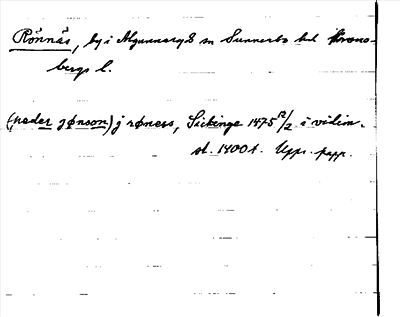 Rönnäs, by i Agunnaryds sn Sunnerbo hd Krono-
bergs l.
(peder jønson) j røness, Sickinge 1475 12/2 i vidim.
st. 1400 t. Upps. papp.